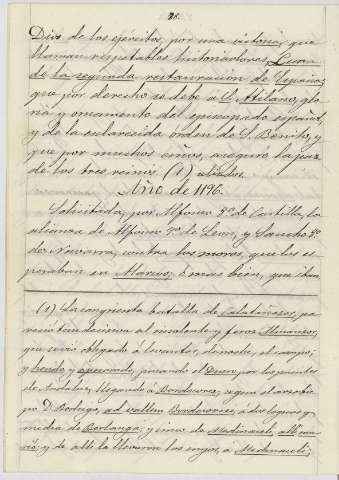 28.
Dios de los ejércitos, por una victoria, que
llaman respetables historiadores, Luna
de la segunda restauracion de España,
que por derecho se debe à S. Atilano, glo-
ria y ornamento del episcopado español,
y de la esclarecida órden de S. Benito, y
que por muchos años, aseguró la paz
de los tres reinos (1) aliados.
Año de 1196.
Solicitada, por Alfonso 8º de Castilla, la
alianza de Alfonso 9º de Leon, y Sancho 7º
de Navarra, contra los moros, que les es-
peraban en Alarcos; ó mas bien, que iban
(1) La sangrienta batalla de Calatañazor, pa-
reció tan decisiva al insolente y feroz Almanzor,
que se vió obligado á levantar, de noche, el campo;
y herido y apesarado, pasando el Duero, por los puentes
de Andaluz, llegando á Bordecorex, segun el arzobis-
po D. Rodrigo, ad vallem Bordecorex, á dos leguas y
media de Berlanga, y cinco de Medinaceli, allí mu-
rió; y de allí la llevaron los suyos, á Medinaceli;